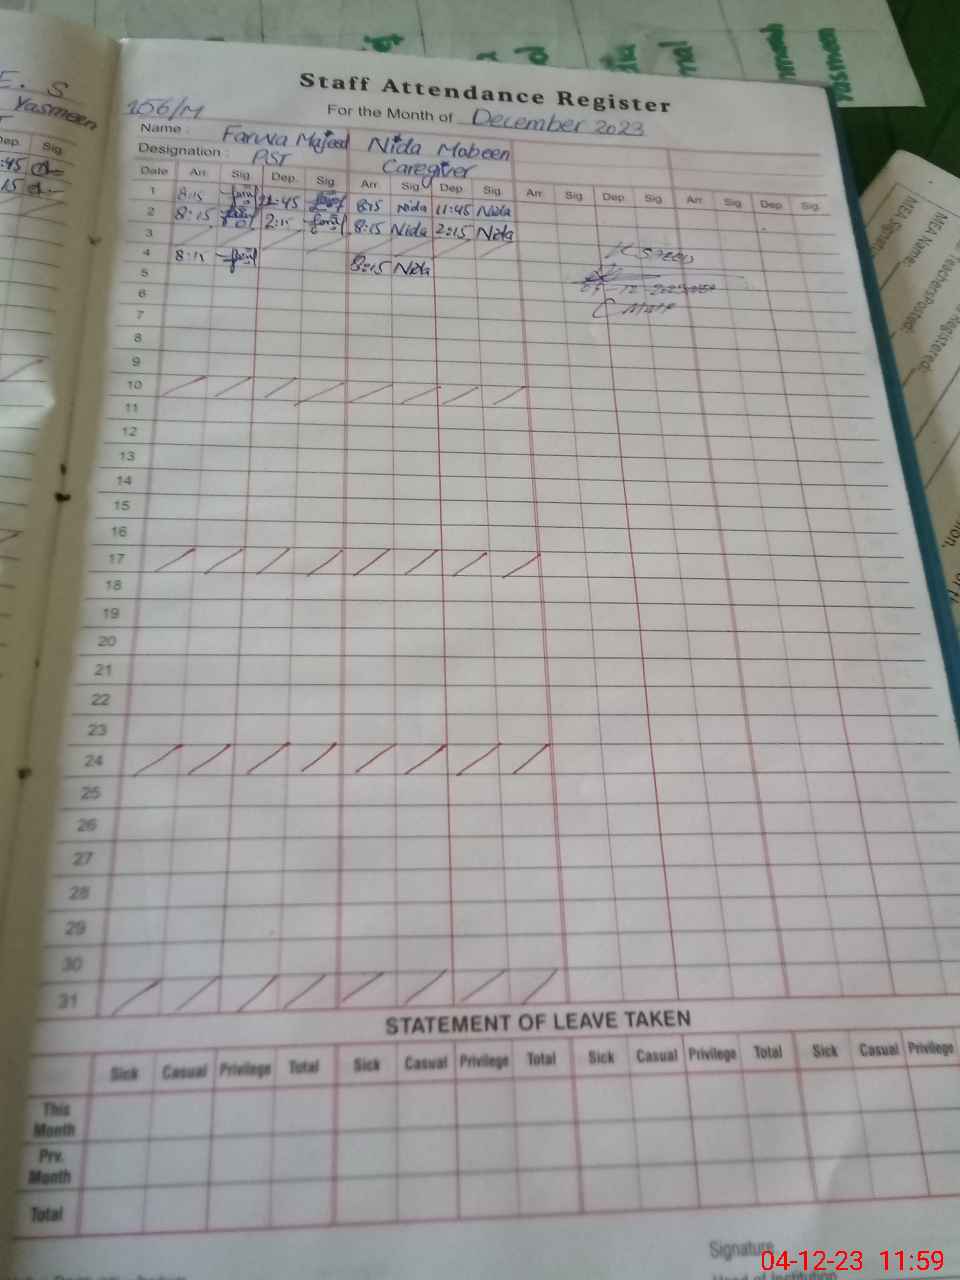 Staff Attendance Register
156/M
For the Month of December 2023
Name : Farwa Majeed Nida Mabeen
Designation : PST Caregiver
Date Arr. Sig. Dep. Sig. Arr. Sig. Dep. Sig. Arr. Sig. Dep. Sig. Arr. Sig. Dep. Sig.
1 8:15 11:45 8:15 Nida 11:45 Nida
2 8:15 2:15 8:15 Nida 2:15 Nida
3
4 8:15 8:15 Nida
5
6
7
8
9
10
11
12
13
14
15
16
17
18
19
20
21
22
23
24
25
26
27
28
29
30
31
STATEMENT OF LEAVE TAKEN
Sick Casual Privilege Total Sick Casual Privilege Total Sick Casual Privilege Total Sick Casual Privilege
This Month
Prv. Month
Total
Signature
E. S
Yasmeen
Dep. Sig.
:45
15
Yasmeen
MEA Name:
04-12-23 11:59